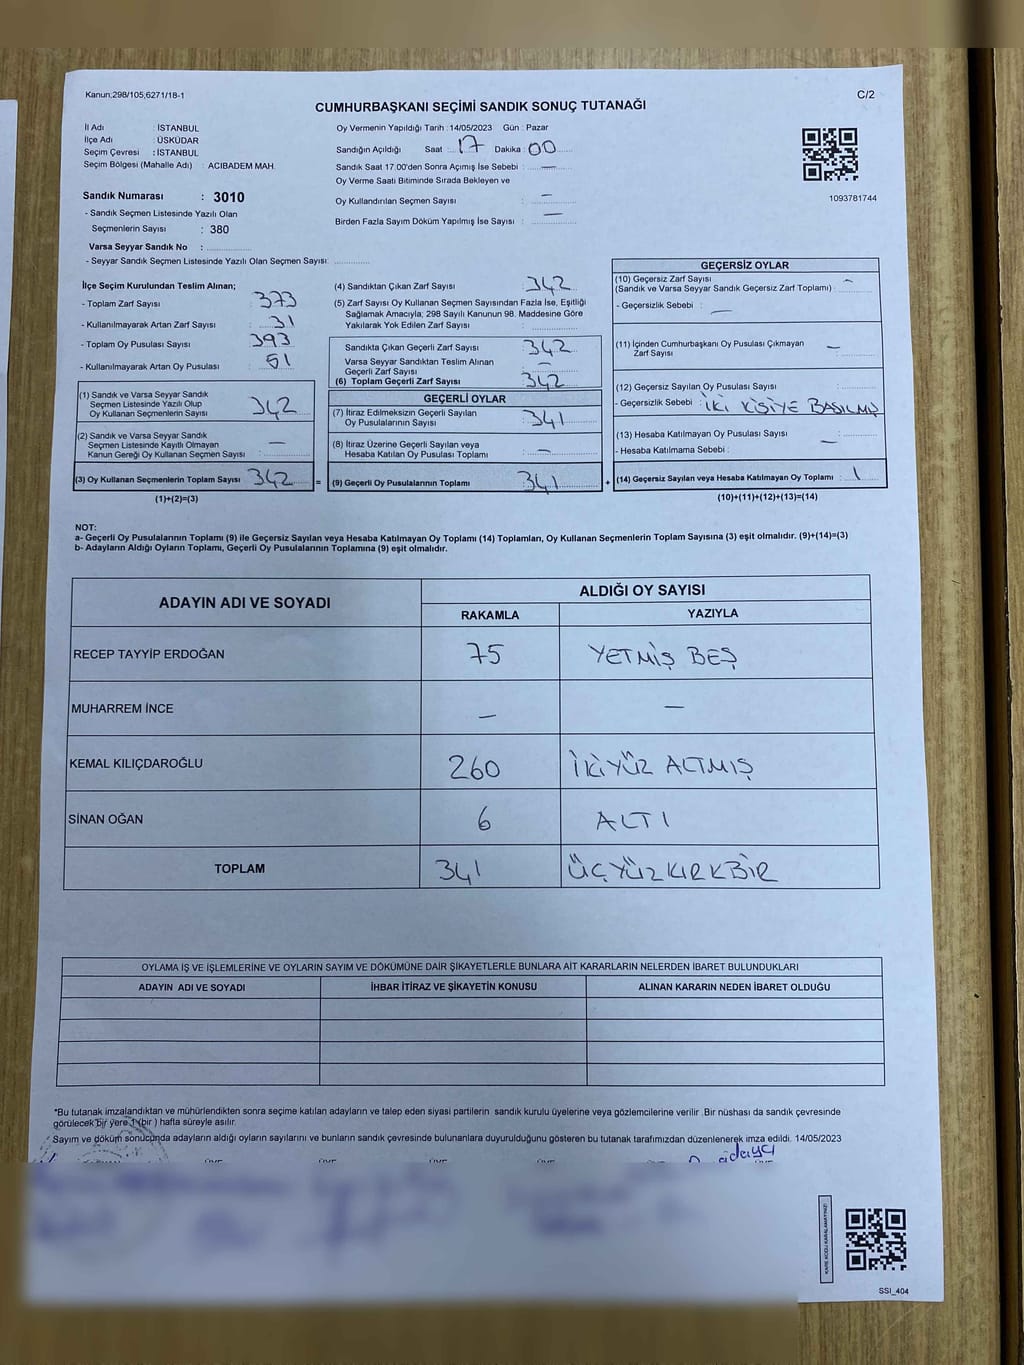 Kanun;298/105;6271/18-1
C/2
CUMHURBAŞKANI SEÇİMİ SANDIK SONUÇ TUTANAĞI
İl Adı : İSTANBUL
İlçe Adı : ÜSKÜDAR
Seçim Çevresi : İSTANBUL
Seçim Bölgesi (Mahalle Adı) : ACIBADEM MAH.
Sandık Numarası : 3010
- Sandık Seçmen Listesinde Yazılı Olan
Seçmenlerin Sayısı : 380
Varsa Seyyar Sandık No :
- Seyyar Sandık Seçmen Listesinde Yazılı Olan Seçmen Sayısı:
Oy Vermenin Yapıldığı Tarih :14/05/2023 Gün : Pazar
Sandığın Açıldığı Saat : 17 Dakika : 00
Sandık Saat 17:00'den Sonra Açımış İse Sebebi : —
Oy Verme Saati Bitiminde Sırada Bekleyen ve
Oy Kullandırılan Seçmen Sayısı : —
Birden Fazla Sayım Döküm Yapılmış İse Sayısı : —
1093781744
İlçe Seçim Kurulundan Teslim Alınan;
- Toplam Zarf Sayısı : 373
- Kullanılmayarak Artan Zarf Sayısı : 31
- Toplam Oy Pusulası Sayısı : 393
- Kullanılmayarak Artan Oy Pusulası : 51
(1) Sandık ve Varsa Seyyar Sandık
Seçmen Listesinde Yazılı Olup
Oy Kullanan Seçmenlerin Sayısı : 342
(2) Sandık ve Varsa Seyyar Sandık
Seçmen Listesinde Kayıtlı Olmayan
Kanun Gereği Oy Kullanan Seçmen Sayısı : —
(3) Oy Kullanan Seçmenlerin Toplam Sayısı : 342
(1)+(2)=(3)
(4) Sandıktan Çıkan Zarf Sayısı : 342
(5) Zarf Sayısı Oy Kullanan Seçmen Sayısından Fazla İse, Eşitliği
Sağlamak Amacıyla; 298 Sayılı Kanunun 98. Maddesine Göre
Yakılarak Yok Edilen Zarf Sayısı :
Sandıkta Çıkan Geçerli Zarf Sayısı : 342
Varsa Seyyar Sandıktan Teslim Alınan
Geçerli Zarf Sayısı : —
(6) Toplam Geçerli Zarf Sayısı : 342
GEÇERLİ OYLAR
(7) İtiraz Edilmeksizin Geçerli Sayılan
Oy Pusulalarının Sayısı : 341
(8) İtiraz Üzerine Geçerli Sayılan veya
Hesaba Katılan Oy Pusulası Toplamı : —
= (9) Geçerli Oy Pusulalarının Toplamı : 341
GEÇERSİZ OYLAR
(10) Geçersiz Zarf Sayısı
(Sandık ve Varsa Seyyar Sandık Geçersiz Zarf Toplamı) : —
- Geçersizlik Sebebi : —
(11) İçinden Cumhurbaşkanı Oy Pusulası Çıkmayan
Zarf Sayısı : —
(12) Geçersiz Sayılan Oy Pusulası Sayısı :
- Geçersizlik Sebebi : İKİ KİŞİYE BASILMIŞ
(13) Hesaba Katılmayan Oy Pusulası Sayısı : —
- Hesaba Katılmama Sebebi :
+ (14) Geçersiz Sayılan veya Hesaba Katılmayan Oy Toplamı : 1
(10)+(11)+(12)+(13)=(14)
NOT:
a- Geçerli Oy Pusulalarının Toplamı (9) ile Geçersiz Sayılan veya Hesaba Katılmayan Oy Toplamı (14) Toplamları, Oy Kullanan Seçmenlerin Toplam Sayısına (3) eşit olmalıdır. (9)+(14)=(3)
b- Adayların Aldığı Oyların Toplamı, Geçerli Oy Pusulalarının Toplamına (9) eşit olmalıdır.
ADAYIN ADI VE SOYADI
ALDIĞI OY SAYISI
RAKAMLA YAZIYLA
RECEP TAYYİP ERDOĞAN 75 YETMİŞ BEŞ
MUHARREM İNCE — —
KEMAL KILIÇDAROĞLU 260 İKİYÜZ ALTMIŞ
SİNAN OĞAN 6 ALTI
TOPLAM 341 ÜÇYÜZKIRKBİR
OYLAMA İŞ VE İŞLEMLERİNE VE OYLARIN SAYIM VE DÖKÜMÜNE DAİR ŞİKAYETLERLE BUNLARA AİT KARARLARIN NELERDEN İBARET BULUNDUKLARI
ADAYIN ADI VE SOYADI İHBAR İTİRAZ VE ŞİKAYETİN KONUSU ALINAN KARARIN NEDEN İBARET OLDUĞU
*Bu tutanak imzalandıktan ve mühürlendikten sonra seçime katılan adayların ve talep eden siyasi partilerin sandık kurulu üyelerine veya gözlemcilerine verilir .Bir nüshası da sandık çevresinde
görülecek bir yere 1 (bir ) hafta süreyle asılır.
Sayım ve döküm sonucunda adayların aldığı oyların sayılarını ve bunların sandık çevresinde bulunanlara duyurulduğunu gösteren bu tutanak tarafımızdan düzenlenerek imza edildi. 14/05/2023
SSI_404